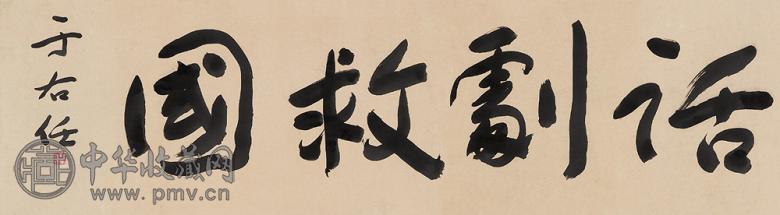 話劇救國
于右任
中华收藏网
www.pmv.cn